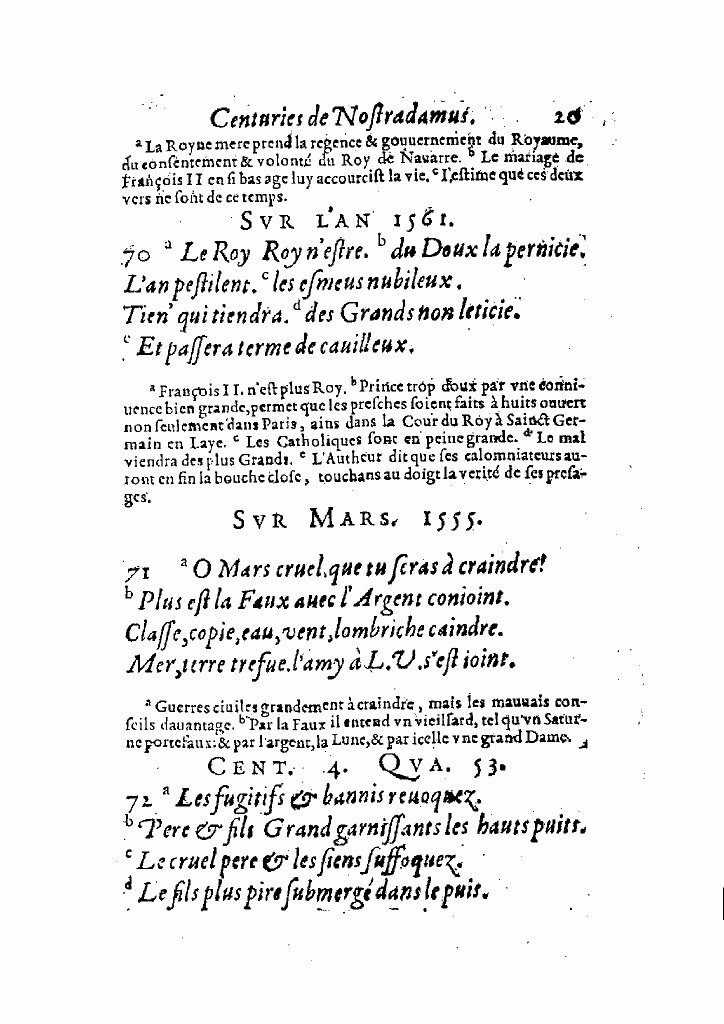 Centuries de Noſtradamus. 26
ᵃ La Royne mere prend la regence & gouuernement du Royaume,
du conſentement & volonté du Roy de Nauarre. ᵇ Le mariage de
François II en ſi bas age luy accourciſt la vie. ᶜ I'eſtime que ces deux
vers ne ſont de ce temps.
SVR L'AN 1561.
70 ᵃ Le Roy Roy n'eſtre. ᵇ du Doux la pernicie.
L'an peſtilent. ᶜ les eſmeus nubileux.
Tien' qui tiendra. ᵈ des Grands non leticie.
ᵉ Et paſſera terme de cauilleux.
ᵃ François II. n'eſt plus Roy. ᵇ Prince trop doux par vne conni-
uence bien grande, permet que les preſches ſoient faits à huits ouuert
non ſeulement dans Paris, ains dans la Cour du Roy à Sainct Ger-
main en Laye. ᶜ Les Catholiques ſont en peine grande. ᵈ Le mal
viendra des plus Grands. ᵉ L'Autheur dit que ſes calomniateurs au-
ront en fin la bouche cloſe, touchans au doigt la verité de ſes preſa-
ges.
SVR MARS. 1555.
71 ᵃ O Mars cruel, que tu ſeras à craindre!
ᵇ Plus eſt la Faux auec l'Argent conioint.
Claſſe, copie, eau, vent, lombriche caindre.
Mer, terre trefue. l'amy à L. V. s'eſt ioint.
ᵃ Guerres ciuiles grandement à craindre, mais les mauuais con-
ſeils dauantage. ᵇ Par la Faux il entend vn vieillard, tel qu'vn Satur-
ne portefaux: & par l'argent, la Lune, & par icelle vne grand Dame.
CENT. 4. QVA. 53.
72 ᵃ Les fugitifs & bannis reuoquez.
ᵇ Pere & fils Grand garniſſants les hauts puits.
ᶜ Le cruel pere & les ſiens ſuffoquez.
ᵈ Le fils plus pire ſubmergé dans le puis.